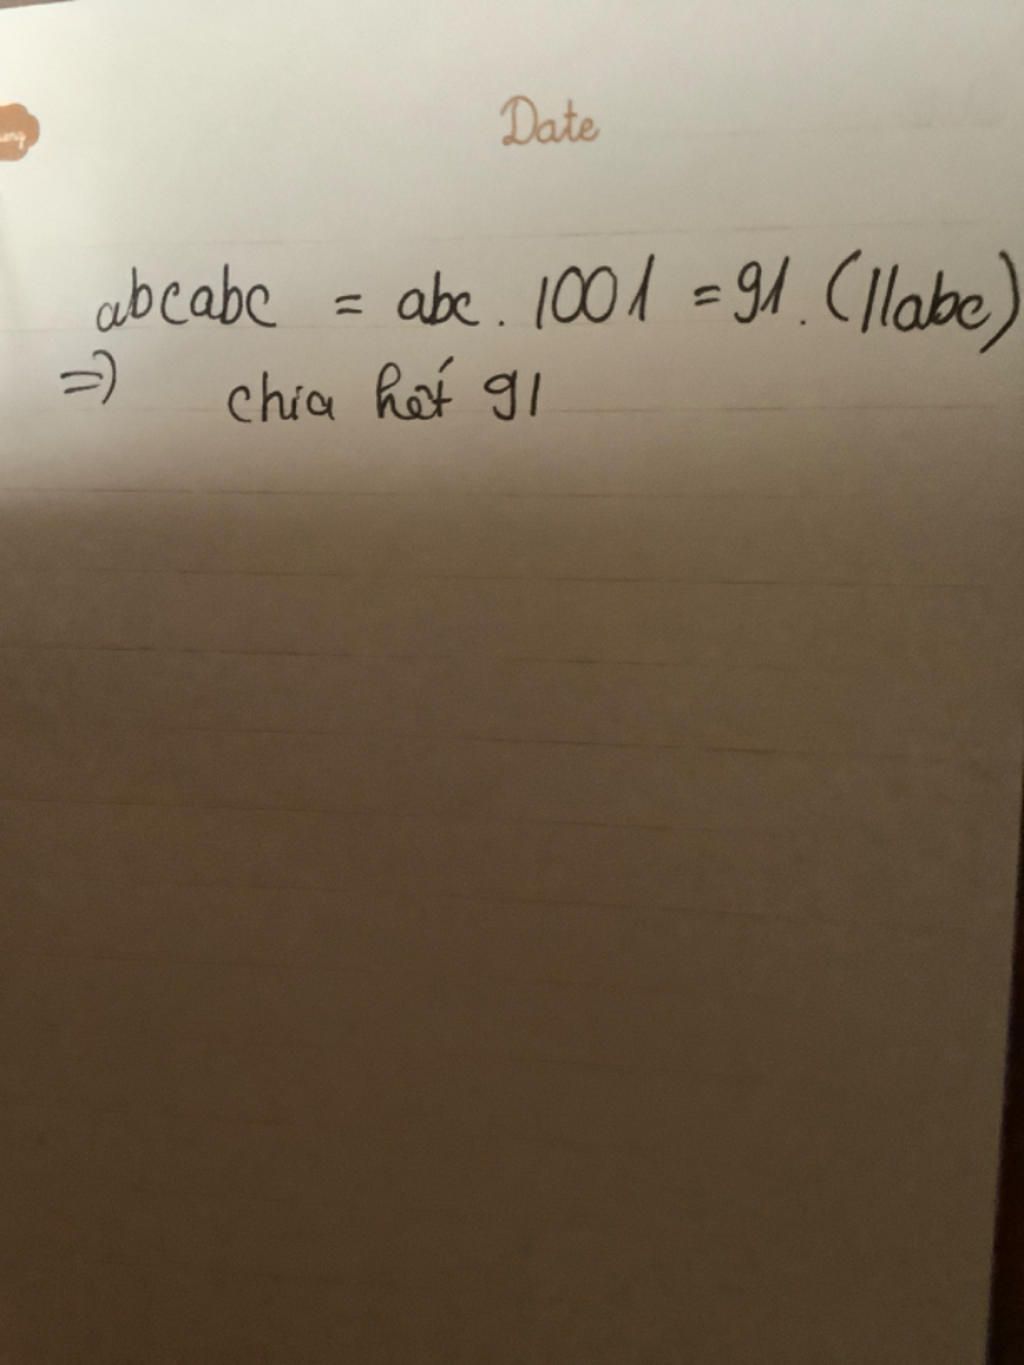 Date
abcabc = abc. 1001 = 91. (11abc)
=) chia hết 91